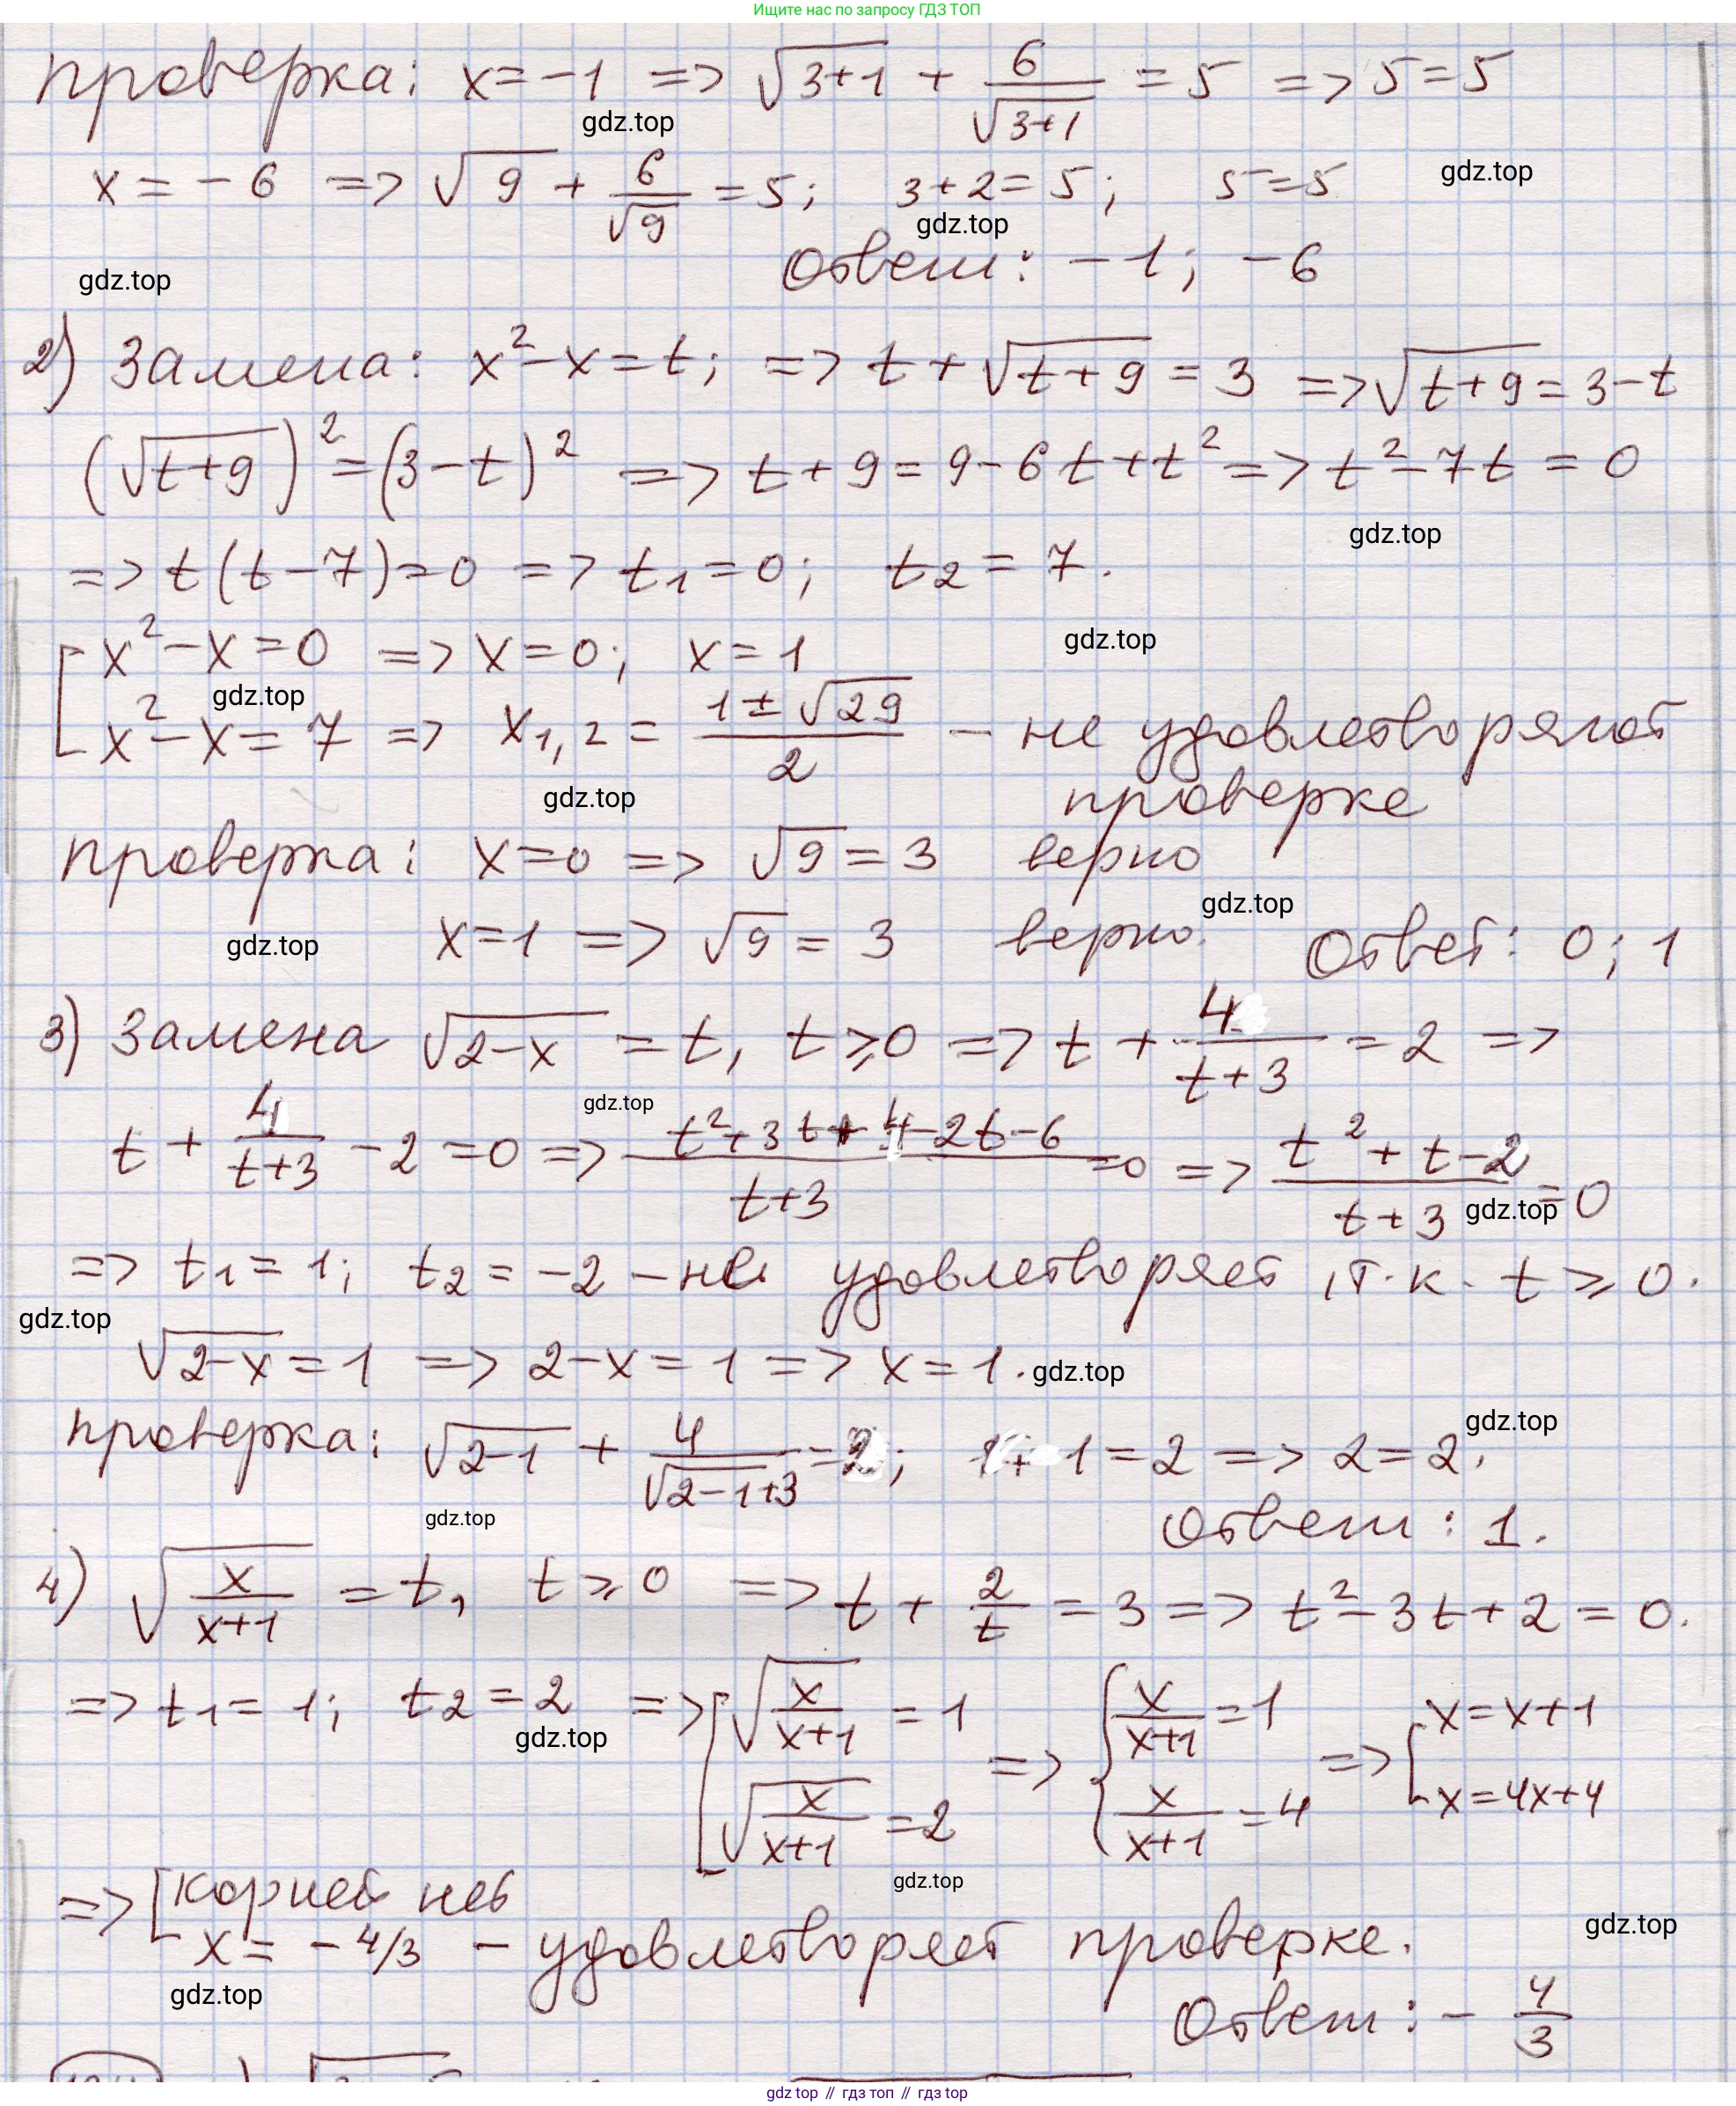 Ищите нас по запросу ГДЗ ТОП
проверка: x=-1 => √(3+1) + 6/√(3+1) = 5 => 5=5
gdz.top
x = -6 => √9 + 6/√9 = 5; 3+2=5; 5=5
gdz.top
gdz.top
Ответ: -1; -6
gdz.top
2) Замена: x²-x=t; => t+√(t+9) = 3 => √(t+9) = 3-t
(√(t+9))² = (3-t)² => t+9=9-6t+t² => t²-7t=0
gdz.top
=> t(t-7)=0 => t₁=0; t₂=7.
[ x²-x=0 => x=0; x=1
gdz.top
gdz.top
x²-x=7 => x₁,₂ = (1±√29)/2 – не удовлетворяют
проверке
gdz.top
проверка: x=0 => √9=3 верно
gdz.top
x=1 => √9=3 верно. Ответ: 0; 1
gdz.top
3) Замена √(2-x) = t, t⩾0 => t + 4/(t+3) = 2 =>
gdz.top
t + 4/(t+3) - 2 = 0 => (t²+3t+4-2t-6)/(t+3) = 0 => (t²+t-2)/(t+3) = 0
gdz.top
=> t₁=1; t₂=-2 – не удовлетворяет, т.к. t⩾0.
gdz.top
√(2-x)=1 => 2-x=1 => x=1.
gdz.top
проверка: √(2-1) + 4/(√(2-1)+3) = 2; 1+1=2 => 2=2.
gdz.top
gdz.top
Ответ: 1.
4) √(x/(x+1)) = t, t⩾0 => t + 2/t = 3 => t²-3t+2=0.
=> t₁=1; t₂=2 => [ √(x/(x+1)) = 1 √(x/(x+1)) = 2 => { x/(x+1) = 1 x/(x+1) = 4 => [ x=x+1 x=4x+4
gdz.top
gdz.top
=> [ корней нет
x = -4/3 – удовлетворяет проверке.
gdz.top
gdz.top
Ответ: -4/3
gdz top // гдз топ // gdz top